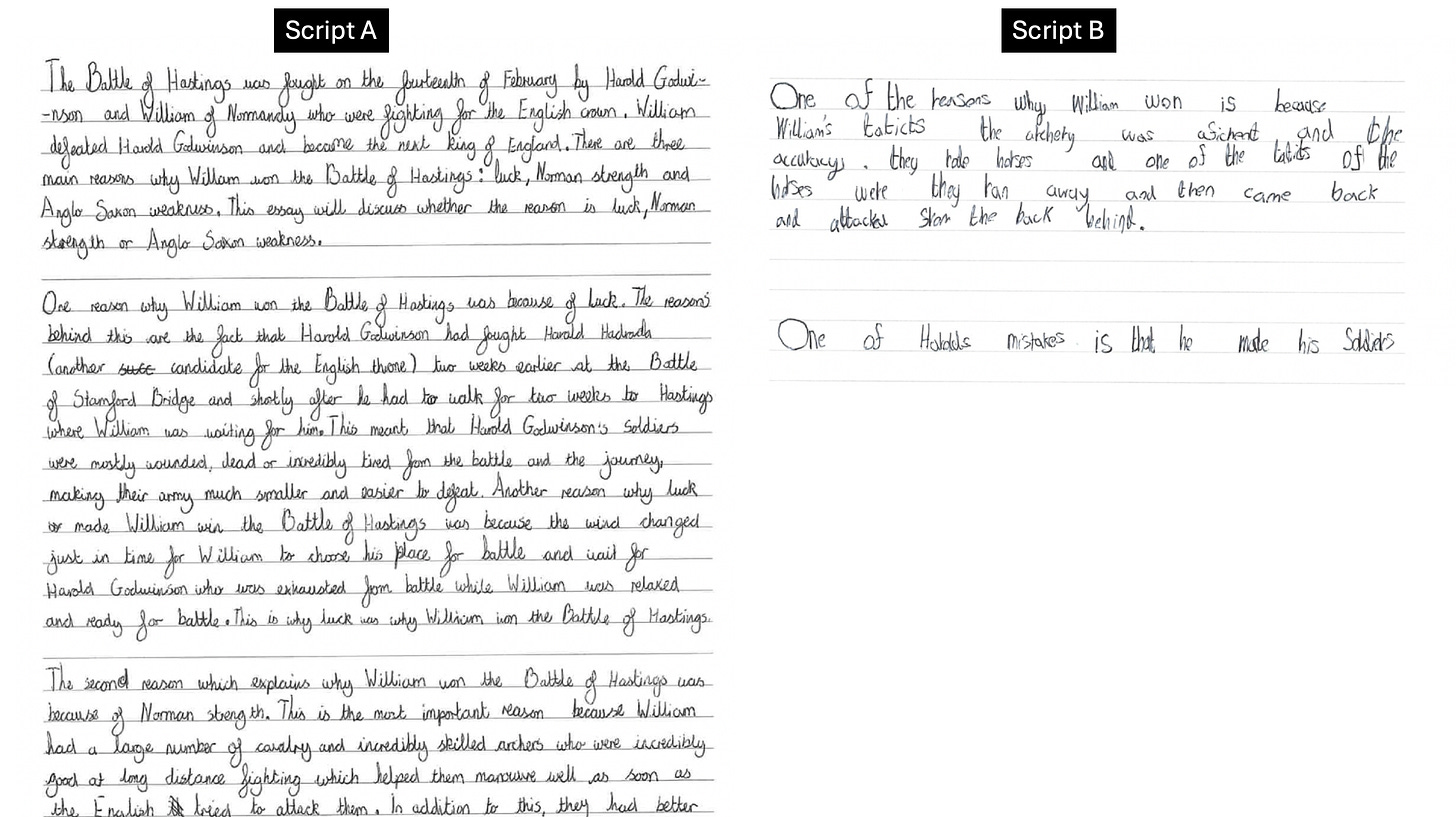 Script A
The Battle of Hastings was fought on the fourteenth of February by Harold Godwi-
-nson and William of Normandy who were fighting for the English crown. William
defeated Harold Godwinson and became the next king of England. There are three
main reasons why William won the Battle of Hastings: luck, Norman strength and
Anglo Saxon weakness. This essay will discuss whether the reason is luck, Norman
strength or Anglo Saxon weakness.
One reason why William won the Battle of Hastings was because of luck. The reasons
behind this are the fact that Harold Godwinson had fought Harald Hadrada
(another candidate for the English throne) two weeks earlier at the Battle
of Stamford Bridge and shortly after he had to walk for two weeks to Hastings
where William was waiting for him. This meant that Harold Godwinson's soldiers
were mostly wounded, dead or incredibly tired from the battle and the journey,
making their army much smaller and easier to defeat. Another reason why luck
made William win the Battle of Hastings was because the wind changed
just in time for William to choose his place for battle and wait for
Harold Godwinson who was exhausted from battle while William was relaxed
and ready for battle. This is why luck was why William won the Battle of Hastings.
The second reason which explains why William won the Battle of Hastings was
because of Norman strength. This is the most important reason because William
had a large number of cavalry and incredibly skilled archers who were incredibly
good at long distance fighting which helped them manouvre well as soon as
the English tried to attack them. In addition to this, they had better
Script B
One of the reasons why William won is because
William's taticts the archery was and the
accuracys. they rode horses and one of the tatits of the
horses were they ran away and then came back
and attacked the back behind.
One of Harolds mistakes is that he made his Soldiers